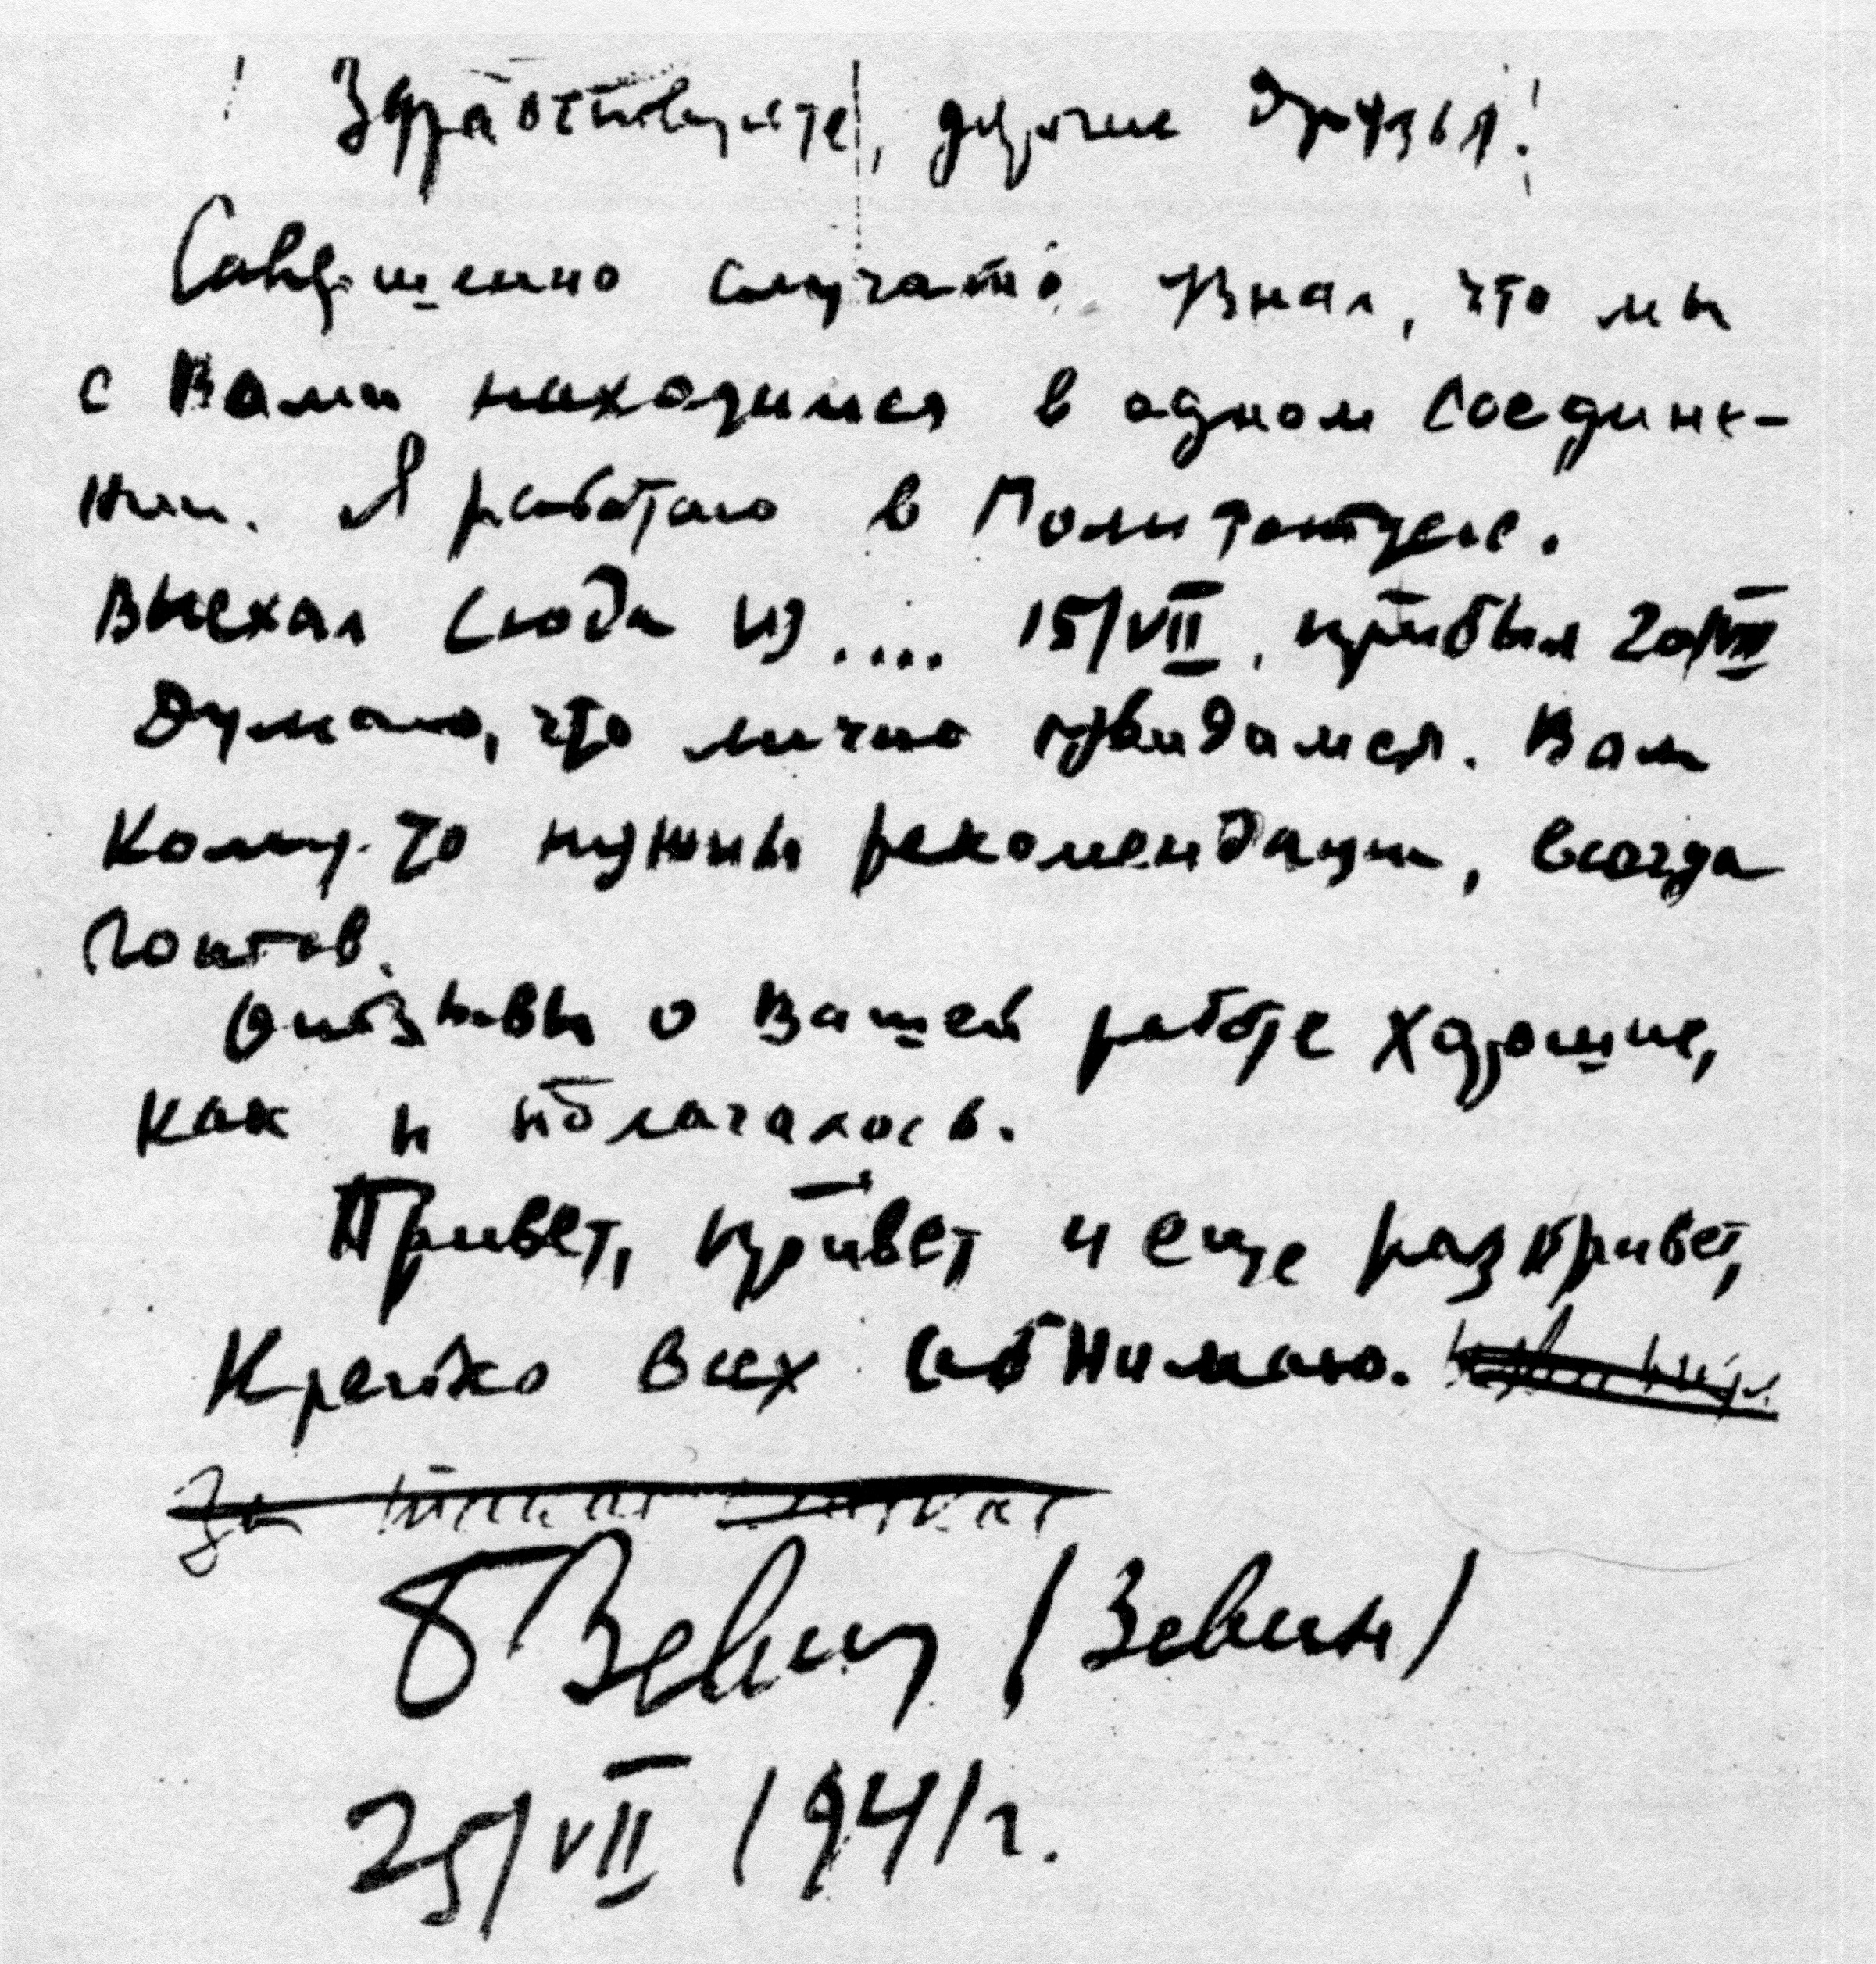 ! Здравствуйте, дорогие друзья!
Совершенно случайно узнал, что мы
с Вами находимся в одном соедине-
нии. Я работаю в Политотделе.
Выехал сюда из .... 15/VII, прибыл 20/VII
Думаю, что лично увидимся. Вам
кому-то нужны рекомендации, всегда
готов.
Отзывы о Вашей работе хорошие,
как и полагалось.
Привет, привет и еще раз привет,
Крепко всех обнимаю.
За
Б Зевин (Зевин)
25/VII 1941 г.